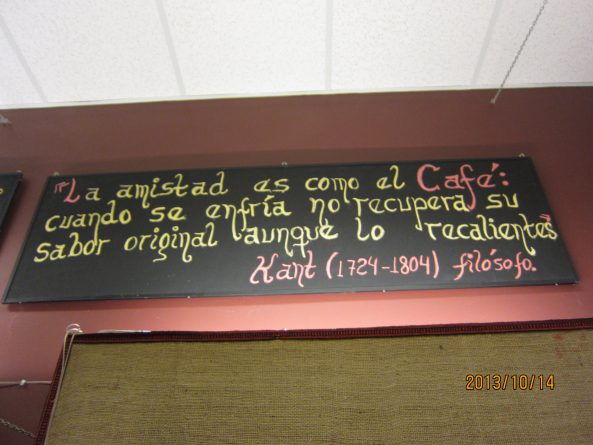 "La amistad es como el Café:
cuando se enfría no recupera su
sabor original aunque lo recalientes"
Kant (1724-1804) filósofo.
2013/10/14